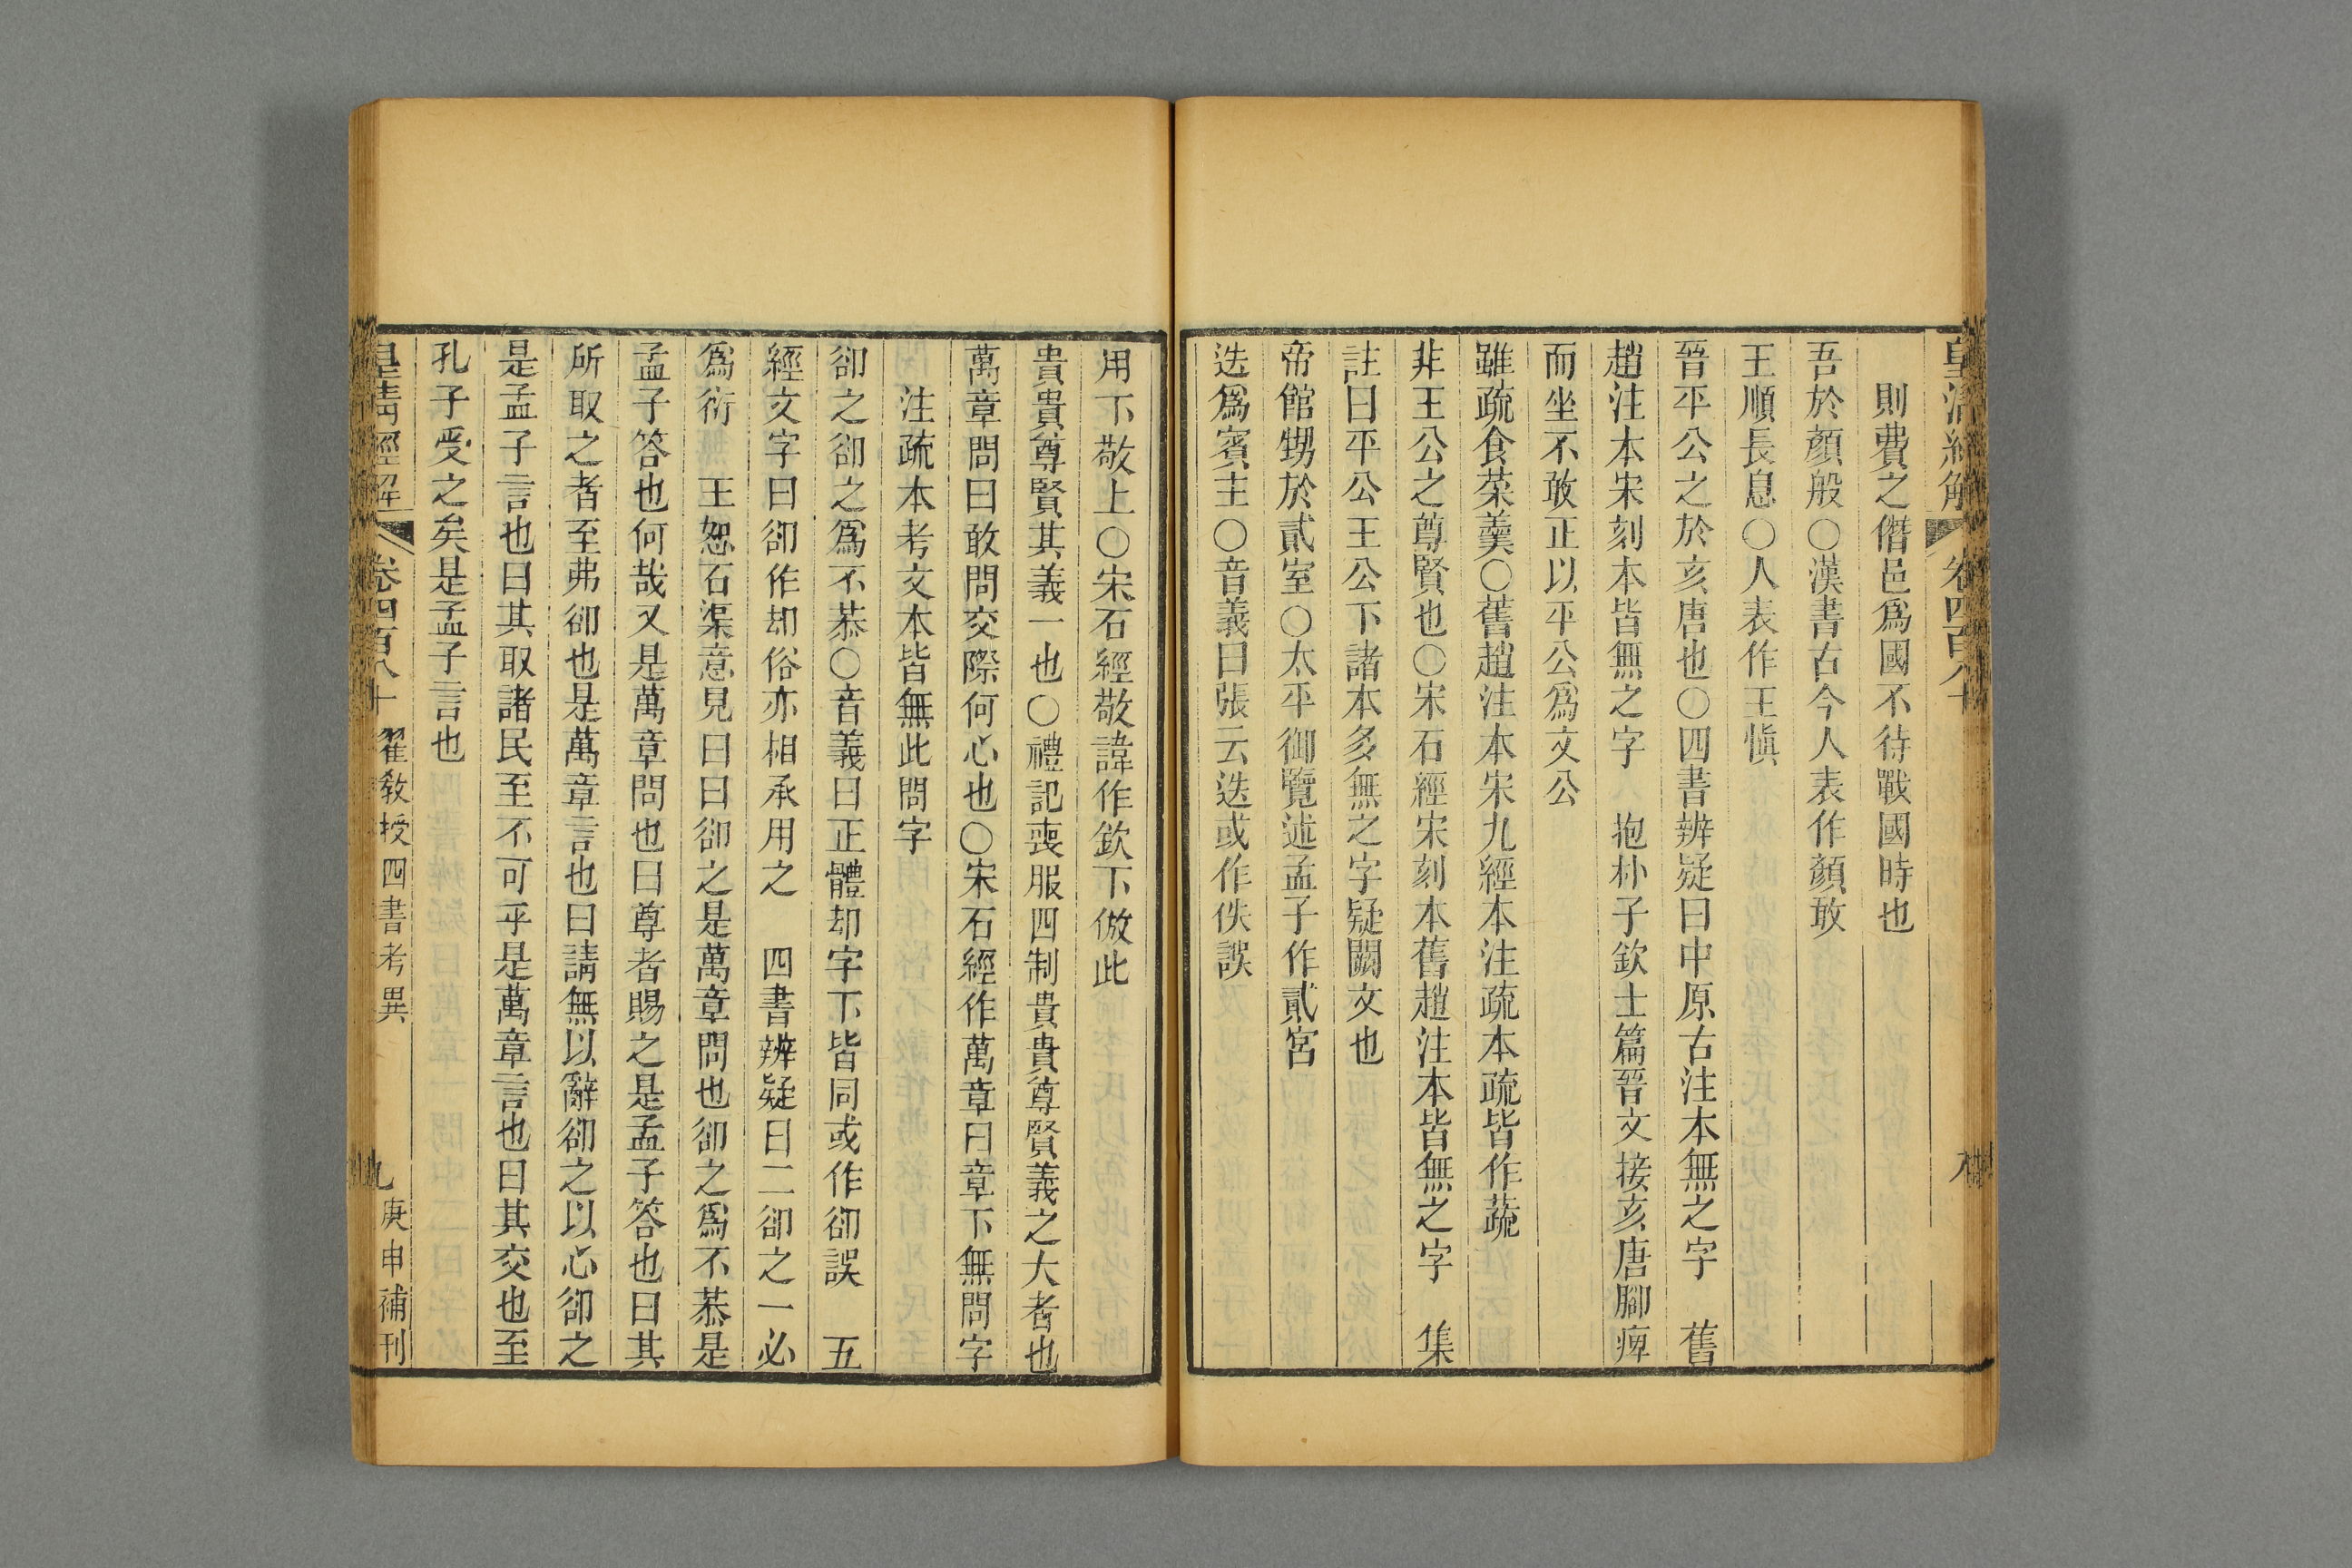 皇清經解 卷四百八十 八
則費之僭邑爲國不待戰國時也
吾於顏般○漢書古今人表作顏敢
王順長息○人表作王愼
晉平公之於亥唐也○四書辨疑曰中原古注本無之字 舊
趙注本宋刻本皆無之字 抱朴子欽士篇晉文接亥唐腳痺
而坐不敢正以平公爲文公
雖疏食菜羹○舊趙注本宋九經本注疏本疏皆作蔬
非王公之尊賢也○宋石經宋刻本舊趙注本皆無之字 集
註曰平公王公下諸本多無之字疑闕文也
帝館甥於貳室○太平御覽述孟子作貳宮
迭爲賓主○音義曰張云迭或作佚誤
用下敬上○宋石經敬諱作欽下倣此
貴貴尊賢其義一也○禮記喪服四制貴貴尊賢義之大者也
萬章問曰敢問交際何心也○宋石經作萬章曰章下無問字
注疏本考文本皆無此問字
卻之卻之爲不恭○音義曰正體却字下皆同或作卻誤 五
經文字曰卻作却俗亦相承用之 四書辨疑曰二卻之一必
爲衍 王恕石渠意見曰曰卻之是萬章問也卻之爲不恭是
孟子答也何哉又是萬章問也曰尊者賜之是孟子答也曰其
所取之者至弗卻也是萬章言也曰請無以辭卻之以心卻之
是孟子言也曰其取諸民至不可乎是萬章言也曰其交也至
孔子受之矣是孟子言也
皇清經解 卷四百八十 翟敎授四書考異 九 庚申補刊